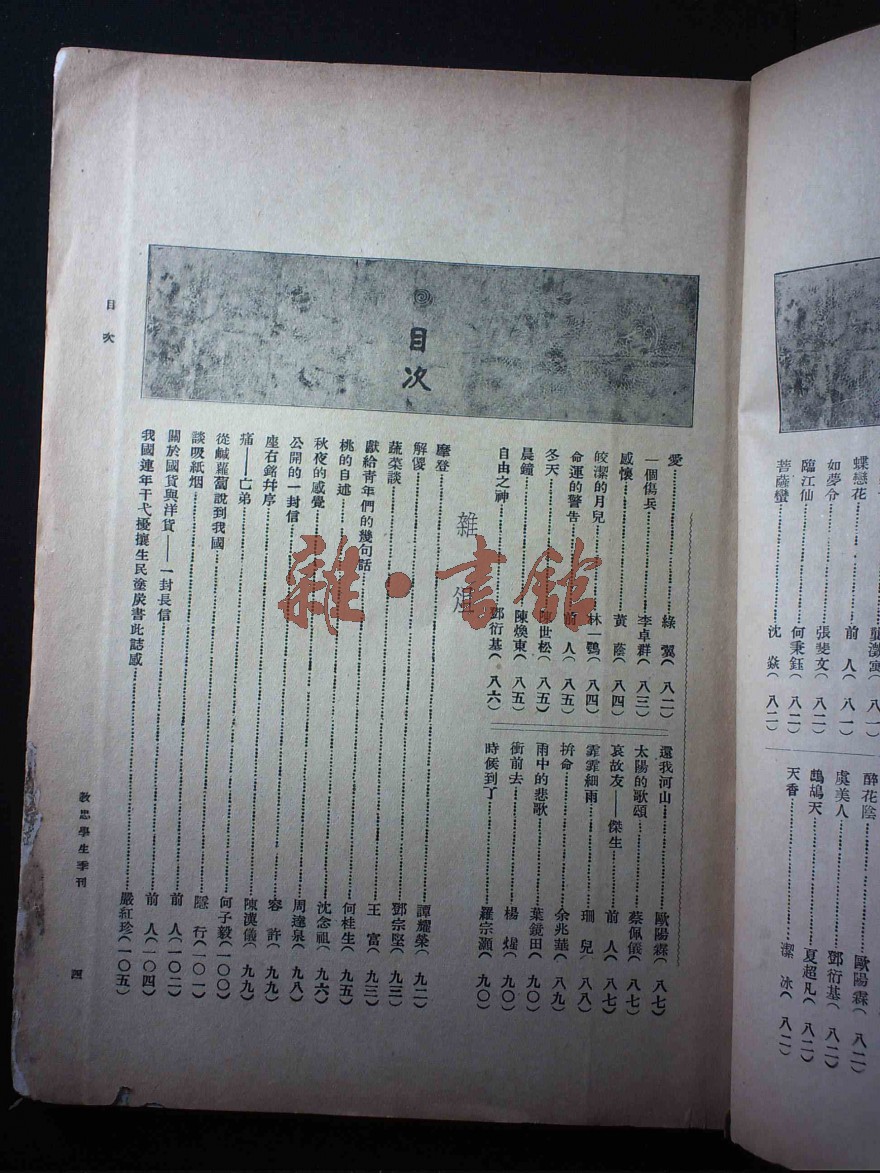 目次
愛……綠翼(八二)
一個傷兵……李卓群(八三)
感懷……黃蔭(八四)
皎潔的月兒……林一鶚(八四)
命運的警告……前人(八五)
冬天……陳世松(八五)
晨鐘……陳煥東(八五)
自由之神……鄧衍基(八六)
還我河山……歐陽霖(八七)
太陽的歌頌……蔡佩儀(八七)
哀故友——傑生……前人(八七)
霏霏細雨……珊兒(八八)
拚命……余兆華(八九)
雨中的悲歌……葉鏡田(九〇)
衝前去……楊煃(九〇)
時候到了……羅宗灝(九〇)
雜俎
摩登……譚耀榮(九二)
解儍……鄧宗堅(九三)
蔬菜談……王富(九三)
獻給青年們的幾句話……何桂生(九五)
桃的自述……沈念祖(九六)
秋夜的感覺……周達泉(九八)
公開的一封信……容許(九九)
座右銘幷序……陳漢儀(九九)
痛——亡弟……何子毅(一〇〇)
從鹹蘿蔔說到我國……隱行(一〇一)
談吸紙烟……前人(一〇二)
關於國貨與洋貨——一封長信……前人(一〇四)
我國連年干弋擾攘生民塗炭書此誌感……嚴紅珍(一〇五)
目次
教忠學生季刊
四
雜·書館
蝶戀花……龔澂寓(八一)
如夢令……前人(八一)
臨江仙……張斐文(八二)
菩薩蠻……何秉鈺(八二)
沈焱(八二)
醉花陰……歐陽霖(八二)
虞美人……鄧衍基(八二)
鷓鴣天……夏超凡(八二)
天香……潔冰(八二)